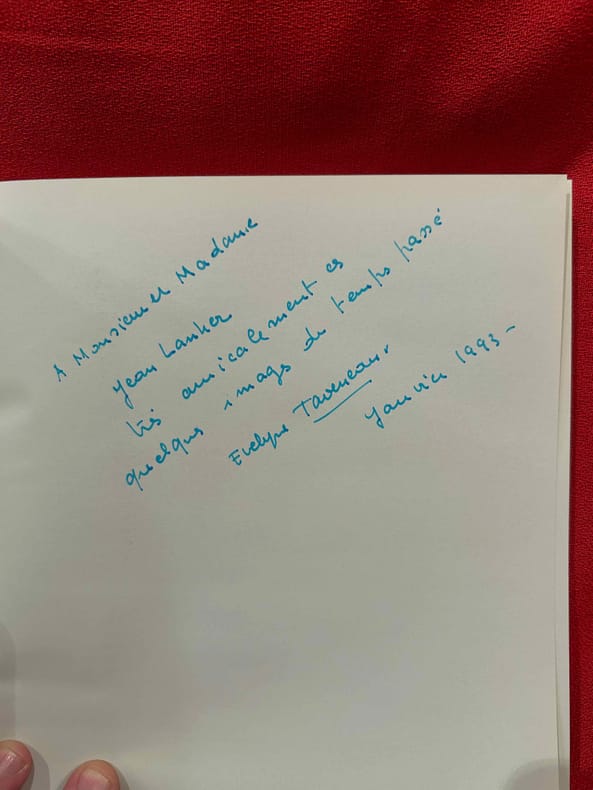 A Monsieur et Madame
Jean Lanher
très amicalement ces
quelques images du temps passé
Evelyne Taveneaux
Janvier 1993 -